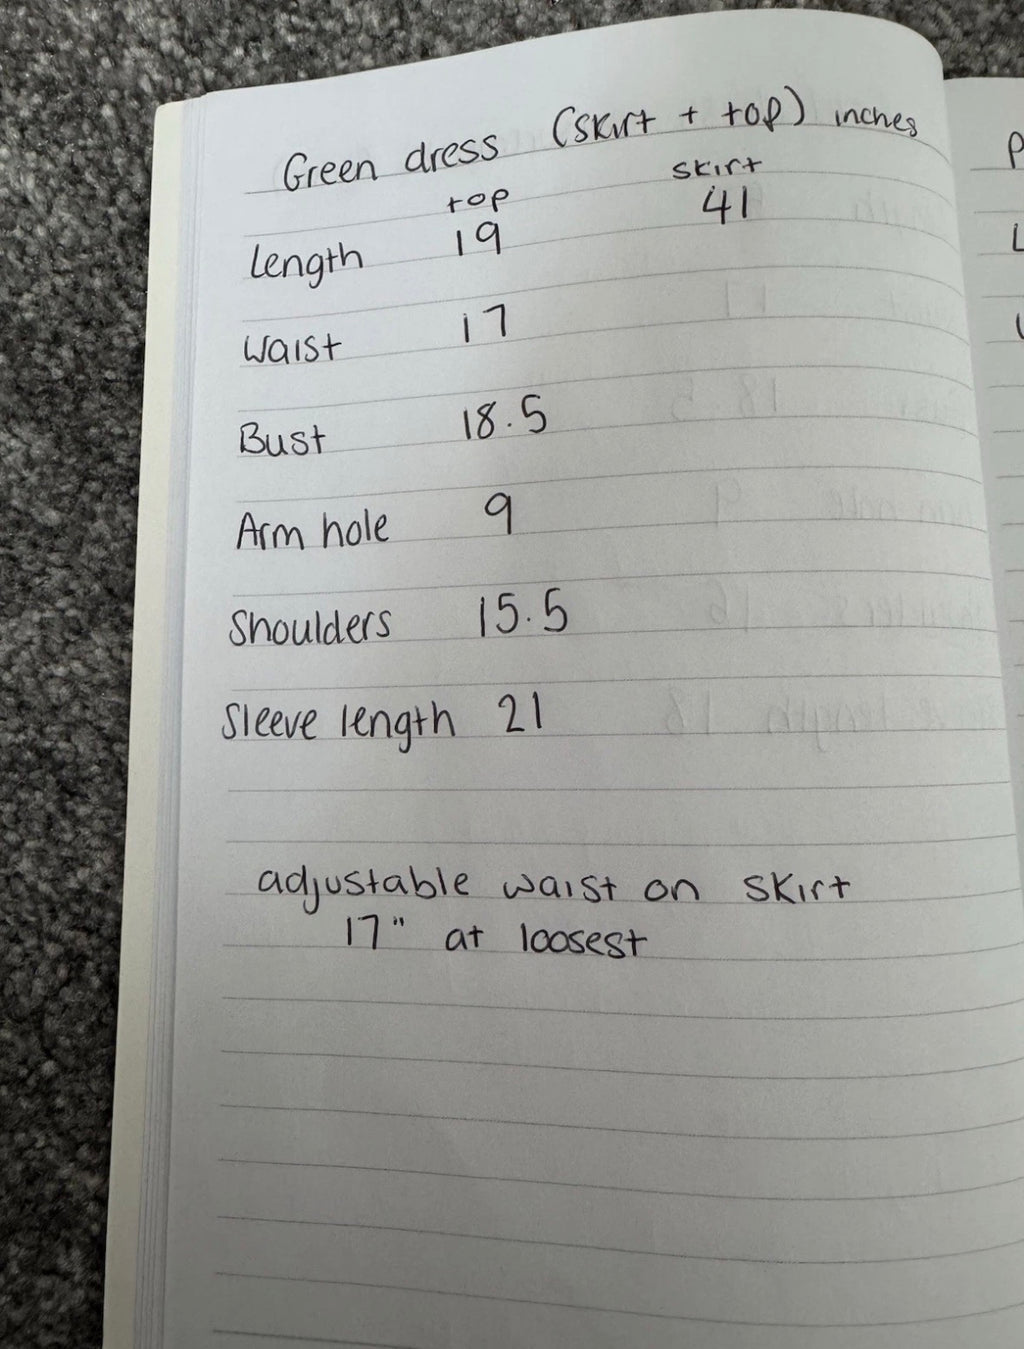 Green dress (skirt + top) inches
top skirt
Length 19 41
Waist 17
Bust 18.5
Arm hole 9
Shoulders 15.5
Sleeve length 21
adjustable waist on skirt
17" at loosest
P
L